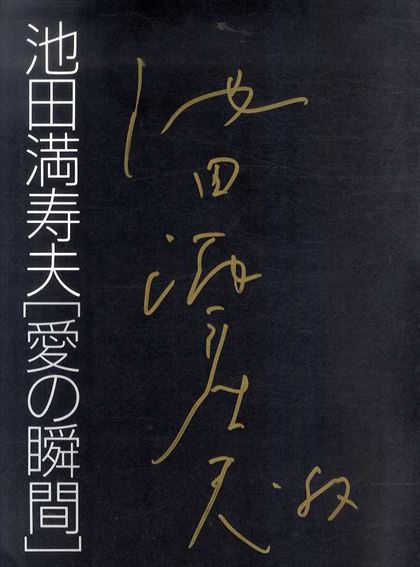 池田満寿夫[愛の瞬間]
池田満寿夫